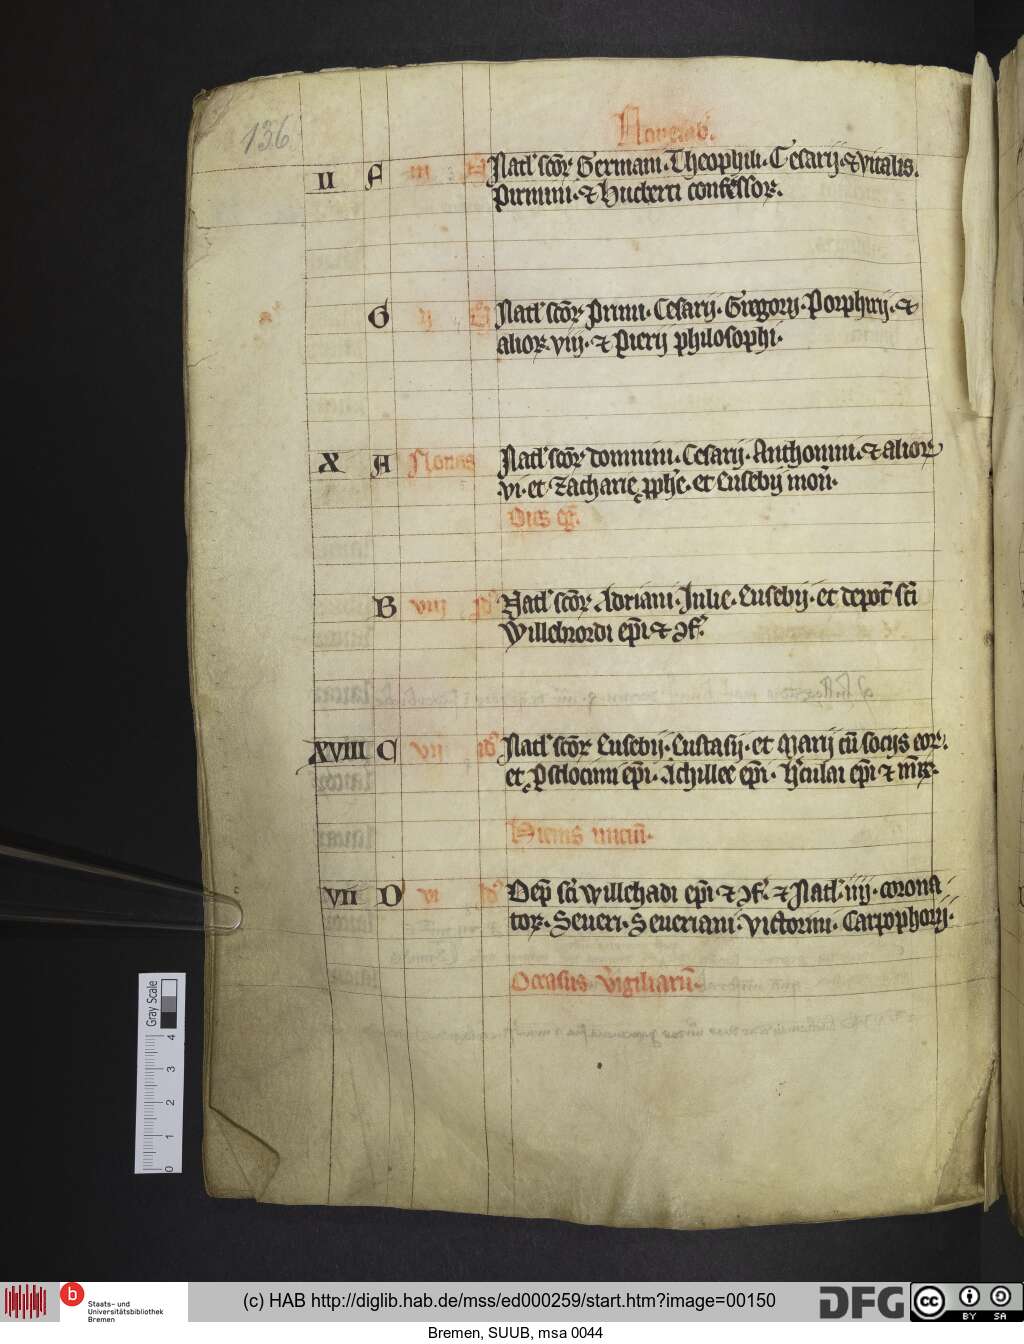 136
Nouemb'.
II F iii N Natl' scōꝝ Germani. Theophili. Cesarij. ⁊ Vitalis.
Pirmini. ⁊ Hucberti confessoꝝ.
G ij N Natl' scōꝝ Primi. Cesarij. Gregorij. Porphirij. ⁊
alioꝝ viij. ⁊ Pierij philosophi.
X A Nonas Natl' scōꝝ domnini. Cesarij. Anthonini. ⁊ alioꝝ
vi. et Zacharię pphē. et Eusebij mon̄.
Dies eg̅.
B viij id' Natl' scōꝝ Adriani. Julie. Eusebij. et depot̄ sc̄i
Willebrordi ep̄i ⁊ ɔf'.
XVIII C vij id' Natl' scōꝝ Eusebij. Eustasij. et Marij cū socijs eoꝝ.
ep̄i. Achillee ep̄i. ep̄i ⁊ m̄ir.
Hiemis iniciū.
VII D vi id' Dep̄ sc̄i willehadi ep̄i. ⁊ ɔf'. ⁊ Natl' iiij. corona
toꝝ. Seueri. Seueriani. Victorini. Carpophorij.
Occasus Virgiliarū.
Gray Scale
4
3
2
1
0
b
Staats- und
Universitätsbibliothek
Bremen
(c) HAB http://diglib.hab.de/mss/ed000259/start.htm?image=00150
DFG
cc BY SA
Bremen, SUUB, msa 0044